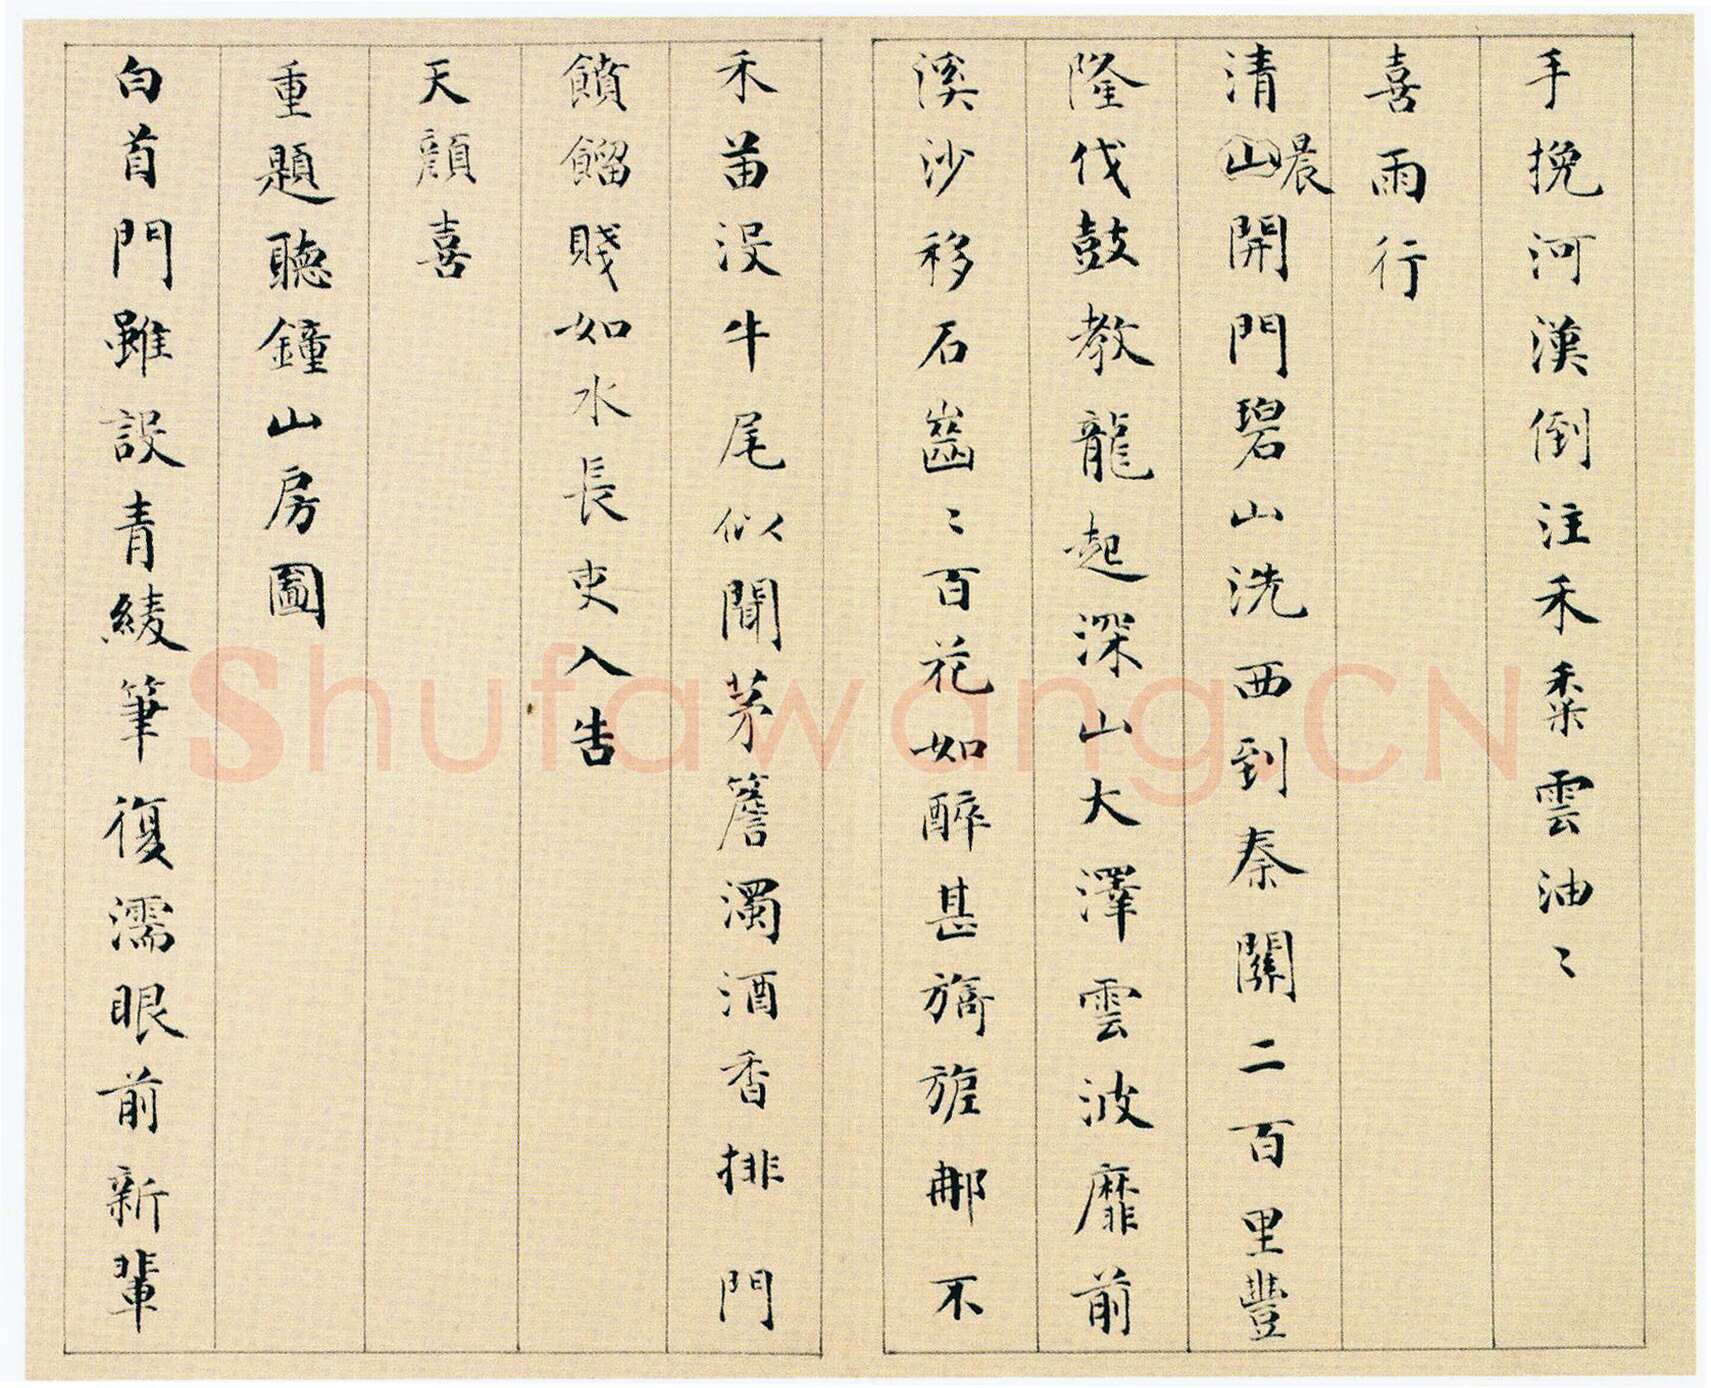 手挽河漢倒注禾黍雲油〻
喜雨行
清山晨開門碧山洗西到秦關二百里豐
隆伐鼓教龍起深山大澤雲波靡前
溪沙移石齒〻百花如醉甚旖旎那不
禾苗没牛尾似聞茅簷濁酒香排門
饙餾賤如水長吏入告
天顔喜
重題聽鐘山房圖
白首門雖設青綾筆復濡眼前新輩
Shufawang.CN